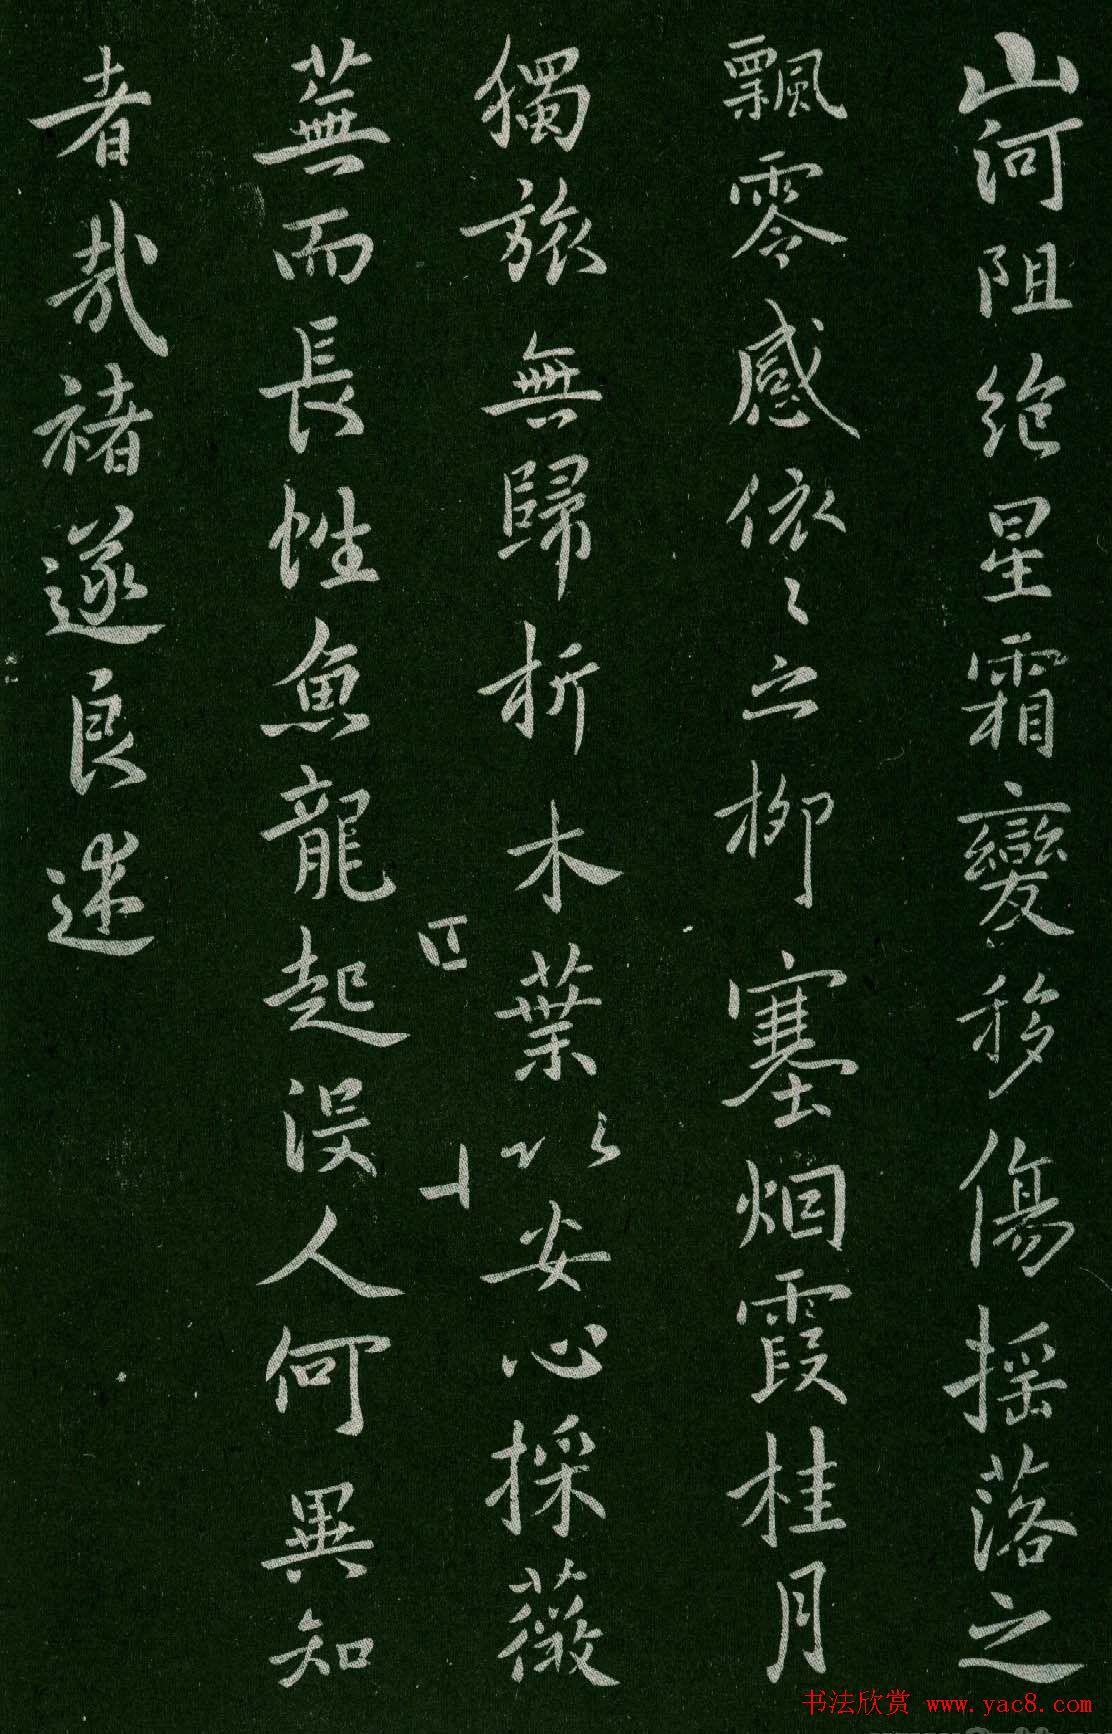 山河阻绝星霜變移傷摇落之
飄零感依〻之柳塞烟霞桂月
獨旅無歸折木葉以安心採薇
蕪而長性魚龍起没人何異知
者哉褚遂良述
书法欣赏 www.yac8.com